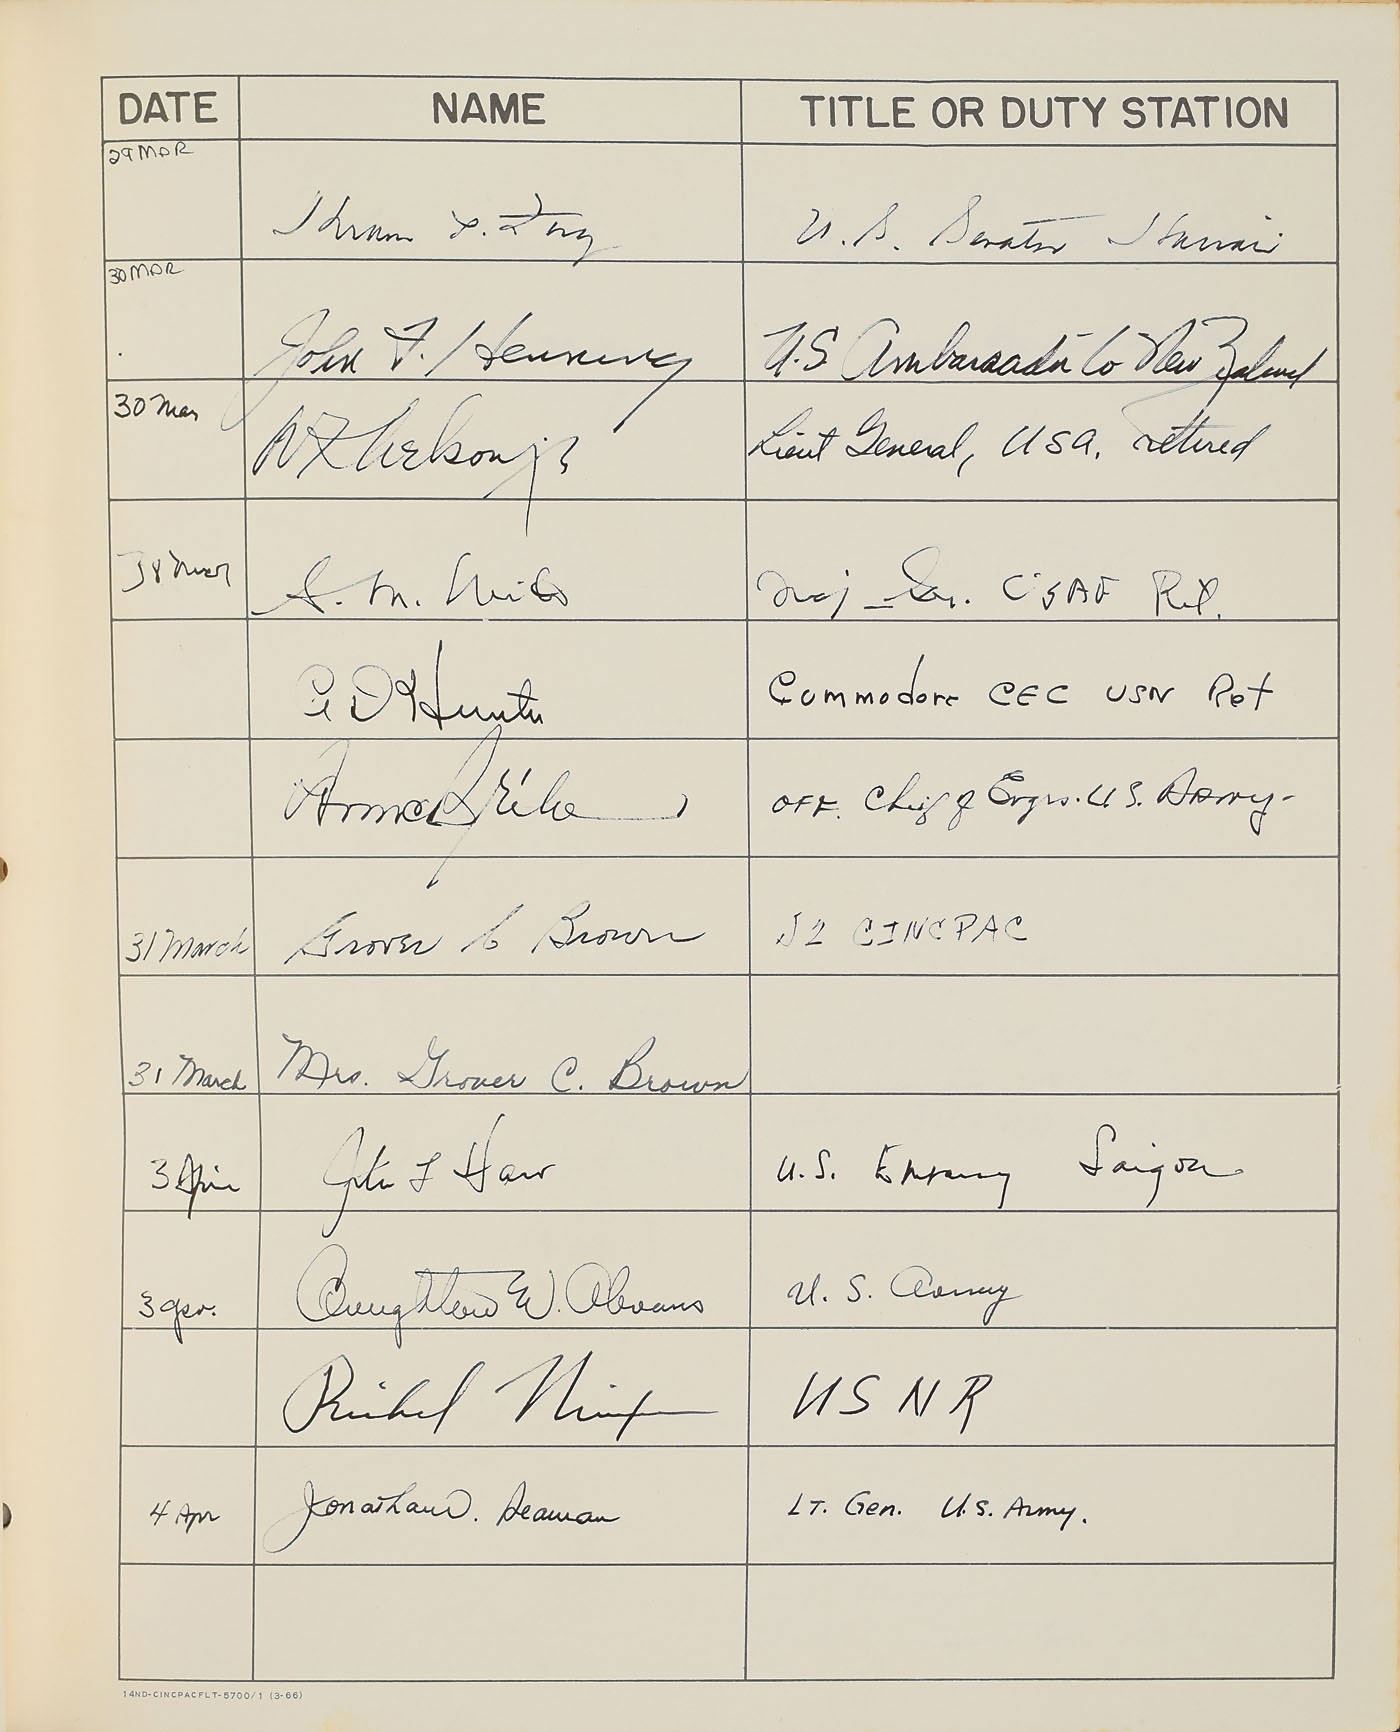 DATE NAME TITLE OR DUTY STATION
29 MAR Hiram L. Fong U. S. Senator Hawaii
30 MAR John F. Henning U.S Ambassador to New Zealand
30 Mar Lieut General, USA. retired
S. M. Maj Gen. USAF Ret.
Hunter Commodore CEC USN Ret
OFF. Chief of Engrs. U.S. Army
31 March Grover C Brown J2 CINCPAC
31 March Mrs. Grover C. Brown
3 April John F Hart U.S. Embassy Saigon
3 Apr. Creighton W. Abrams U. S. Army
Richard Nixon USNR
4 Apr Jonathan O. Seaman LT. Gen. U.S. Army.
14ND-CINCPACFLT-5700/1 (3-66)